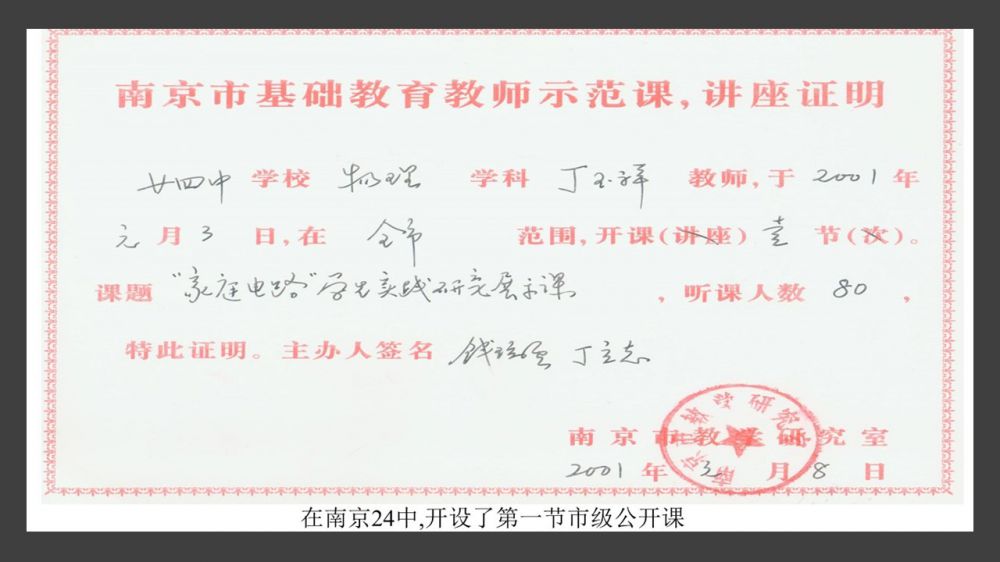 南京市基础教育教师示范课，讲座证明
廿四中 学校 物理 学科 丁玉祥 教师，于 2001 年
元 月 3 日，在 全市 范围，开课(讲座) 壹 节(次)。
课题 “家庭电路”学生实践研究展示课 ，听课人数 80 ，
特此证明。主办人签名 丁立志
南京市教学研究室
南京市教学研究室
2001 年 元 月 8 日
在南京24中,开设了第一节市级公开课